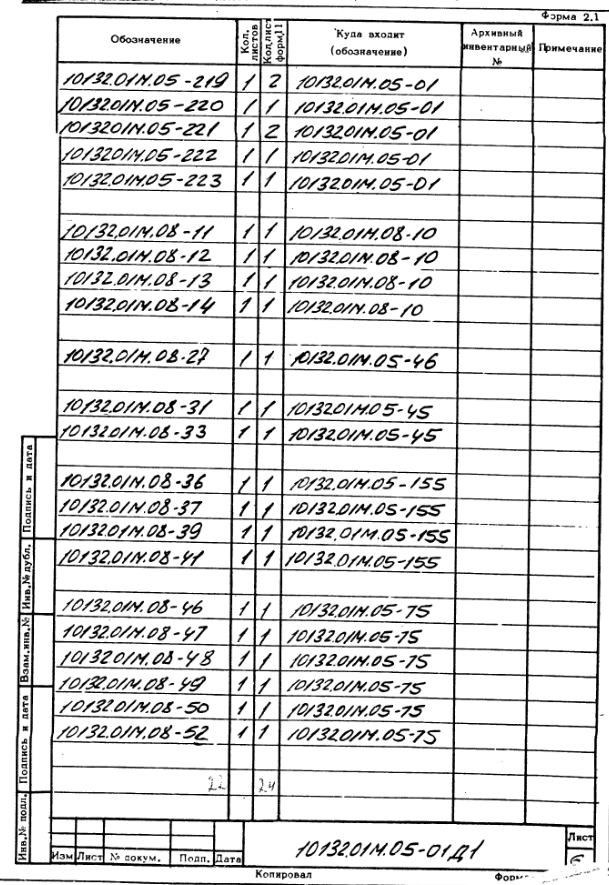 Форма 2.1
Обозначение Кол. листов Кол.лист форм.11 Куда входит (обозначение) Архивный инвентарный № Примечание
10132.01М.05-219 1 2 10132.01М.05-01
10132.01М.05-220 1 1 10132.01М.05-01
10132.01М.05-221 1 2 10132.01М.05-01
10132.01М.05-222 1 1 10132.01М.05-01
10132.01М.05-223 1 1 10132.01М.05-01
10132.01М.08-11 1 1 10132.01М.08-10
10132.01М.08-12 1 1 10132.01М.08-10
10132.01М.08-13 1 1 10132.01М.08-10
10132.01М.08-14 1 1 10132.01М.08-10
10132.01М.08-27 1 1 10132.01М.05-46
10132.01М.08-31 1 1 10132.01М.05-45
10132.01М.08-33 1 1 10132.01М.05-45
10132.01М.08-36 1 1 10132.01М.05-155
10132.01М.08-37 1 1 10132.01М.05-155
10132.01М.08-39 1 1 10132.01М.05-155
10132.01М.08-41 1 1 10132.01М.05-155
10132.01М.08-46 1 1 10132.01М.05-75
10132.01М.08-47 1 1 10132.01М.05-75
10132.01М.08-48 1 1 10132.01М.05-75
10132.01М.08-49 1 1 10132.01М.05-75
10132.01М.08-50 1 1 10132.01М.05-75
10132.01М.08-52 1 1 10132.01М.05-75
22 24
Подпись и дата
Инв.№ дубл.
Взам.инв.№
Подпись и дата
Инв.№ подл.
Изм Лист № докум. Подп. Дата
10132.01М.05-01Д1
Лист
Копировал